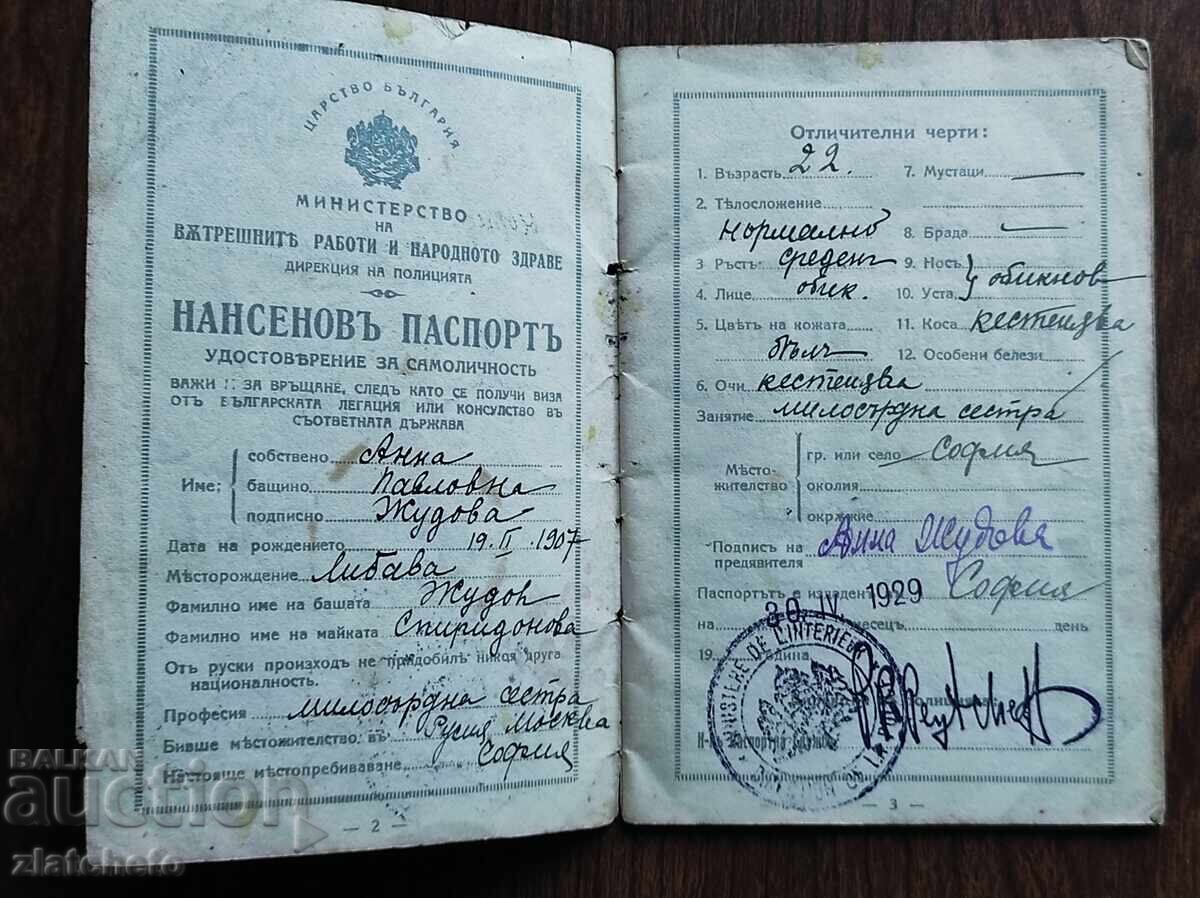 ЦАРСТВО БЪЛГАРИЯ
МИНИСТЕРСТВО
НА
ВѪТРЕШНИТѢ РАБОТИ И НАРОДНОТО ЗДРАВЕ
ДИРЕКЦИЯ НА ПОЛИЦИЯТА
НАНСЕНОВЪ ПАСПОРТЪ
УДОСТОВѢРЕНИЕ ЗА САМОЛИЧНОСТЬ
ВАЖИ И ЗА ВРЪЩАНЕ, СЛЕДЪ КАТО СЕ ПОЛУЧИ ВИЗА
ОТЪ БЪЛГАРСКАТА ЛЕГАЦИЯ ИЛИ КОНСУЛСТВО ВЪ
СЪОТВЕТНАТА ДЪРЖАВА
Име:
собствено Анна
бащино Павловна
подписно Жудова
Дата на рождението 19. II. 1907
Мѣсторождение Либава
Фамилно име на бащата Жудов
Фамилно име на майката Спиридонова
Отъ руски произходъ не придобилъ никоя друга
националность.
Професия милосърдна сестра
Бивше мѣстожителство въ Русия, Москва
Настояще мѣстопребиваване София
— 2 —
Отличителни черти:
1. Възрасть 22.
7. Мустаци —
2. Тѣлосложение
нормално
8. Брада —
3 Ръстъ среденъ
9. Носъ } обикнов
4. Лице обик.
10. Уста
5. Цвѣтъ на кожата
бѣлъ
11. Коса кестенява
12. Особени белези
6. Очи кестеняви
Занятие милосърдна сестра
Мѣсто-
жителство
гр. или село София
околия
окрѫжие
Подпись на
предявителя Анна Жудова
Паспортътъ е издаденъ София
30. IV. 1929
на месецъ день
19 година
MINISTERE DE L'INTERIEUR
Н-къ паспортна служба
— 3 —
BALKAN
auction
zlatcheto